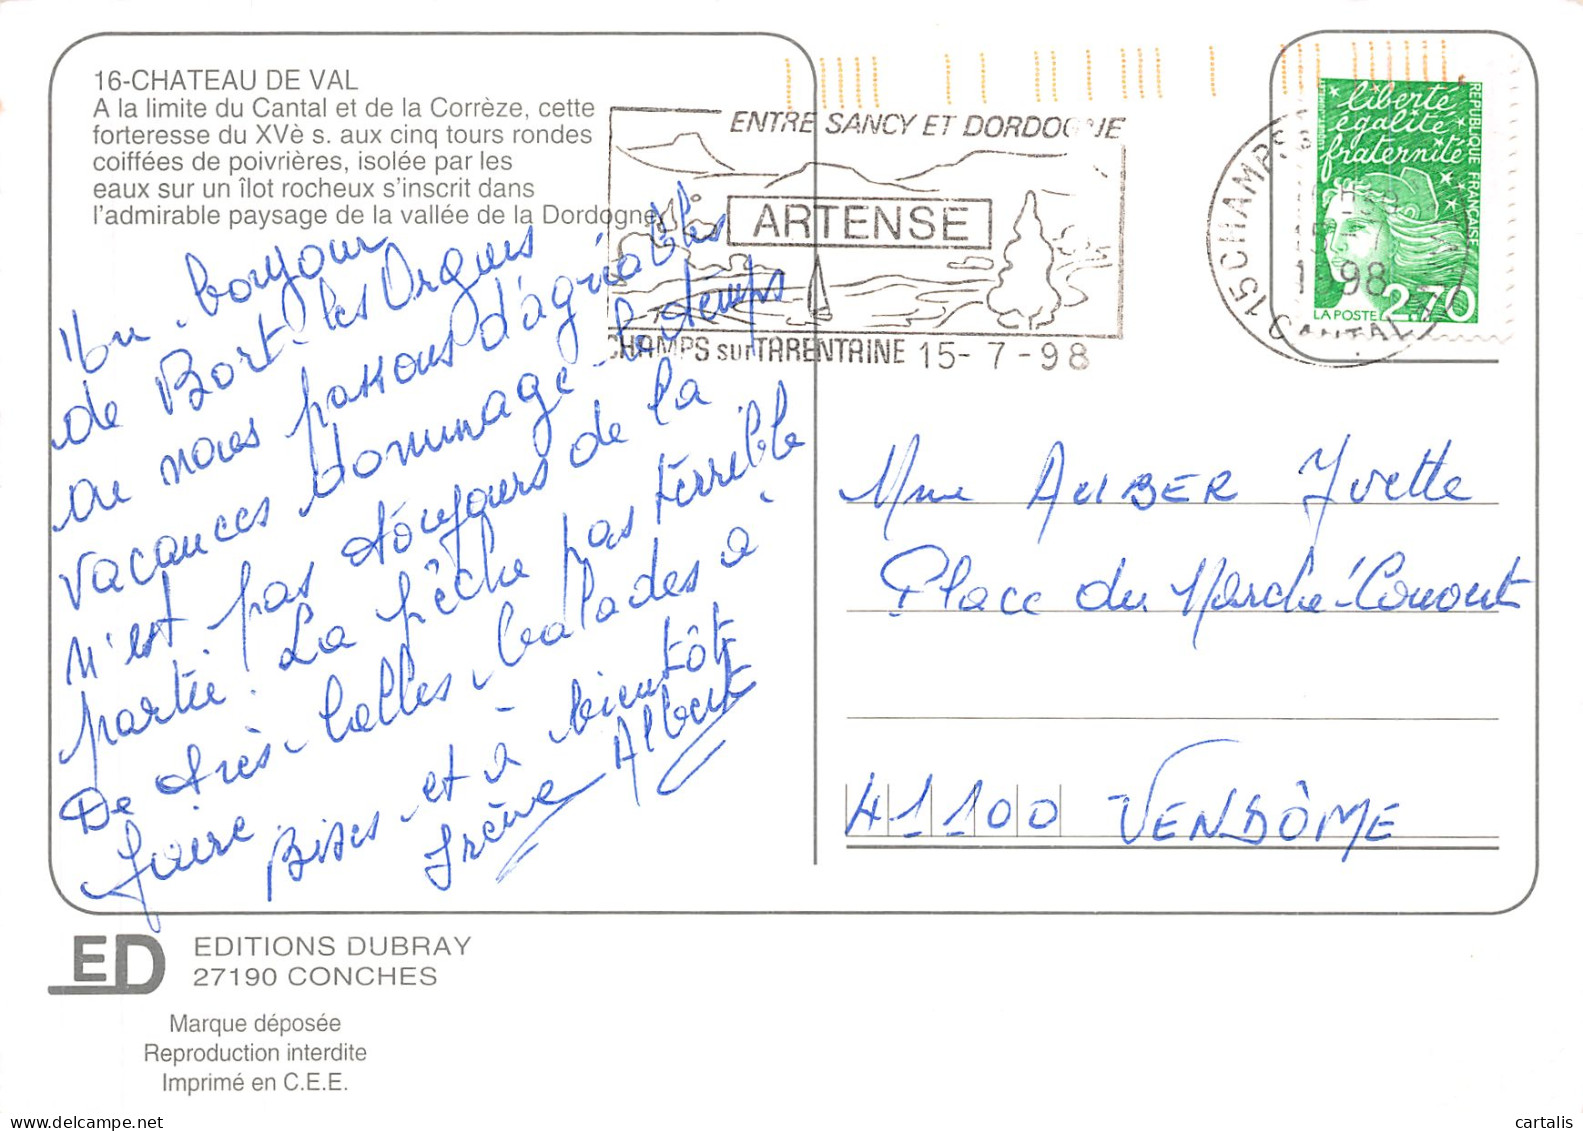 16-CHATEAU DE VAL
A la limite du Cantal et de la Corrèze, cette
forteresse du XVè s. aux cinq tours rondes
coiffées de poivrières, isolée par les
eaux sur un îlot rocheux s'inscrit dans
l'admirable paysage de la vallée de la Dordogne.
Un bonjour
de Bort-les Orgues
où nous passons d'agréables
vacances dommage le temps
n'est pas toujours de la
partie. La pêche pas terrible
De très belles balades à
faire
Bises et à bientôt
Irène Albert
ENTRE SANCY ET DORDOGNE
ARTENSE
CHAMPS sur TARENTAINE 15-7-98
15 CHAMPS S
15
1 98
CANTAL
liberté
égalité
fraternité
RÉPUBLIQUE FRANÇAISE
LA POSTE 2,70
Mme AUBER Yvette
Place du Marché-Couvert
41100 VENDÔME
ED
EDITIONS DUBRAY
27190 CONCHES
Marque déposée
Reproduction interdite
Imprimé en C.E.E.
cartalis